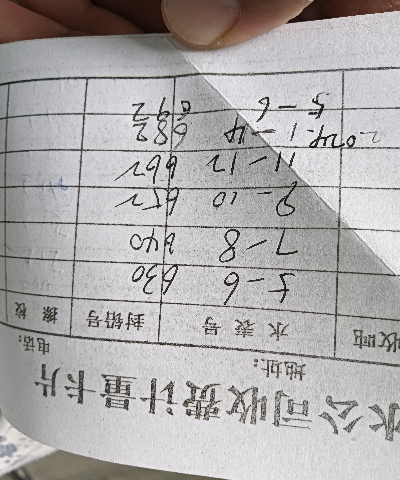 水公司收费计量卡片
地址： 电话：
水表号 封铅号
5-6 630
7-8 640
9-10 652
11-12 662
2024.1-4 682
5-6 692